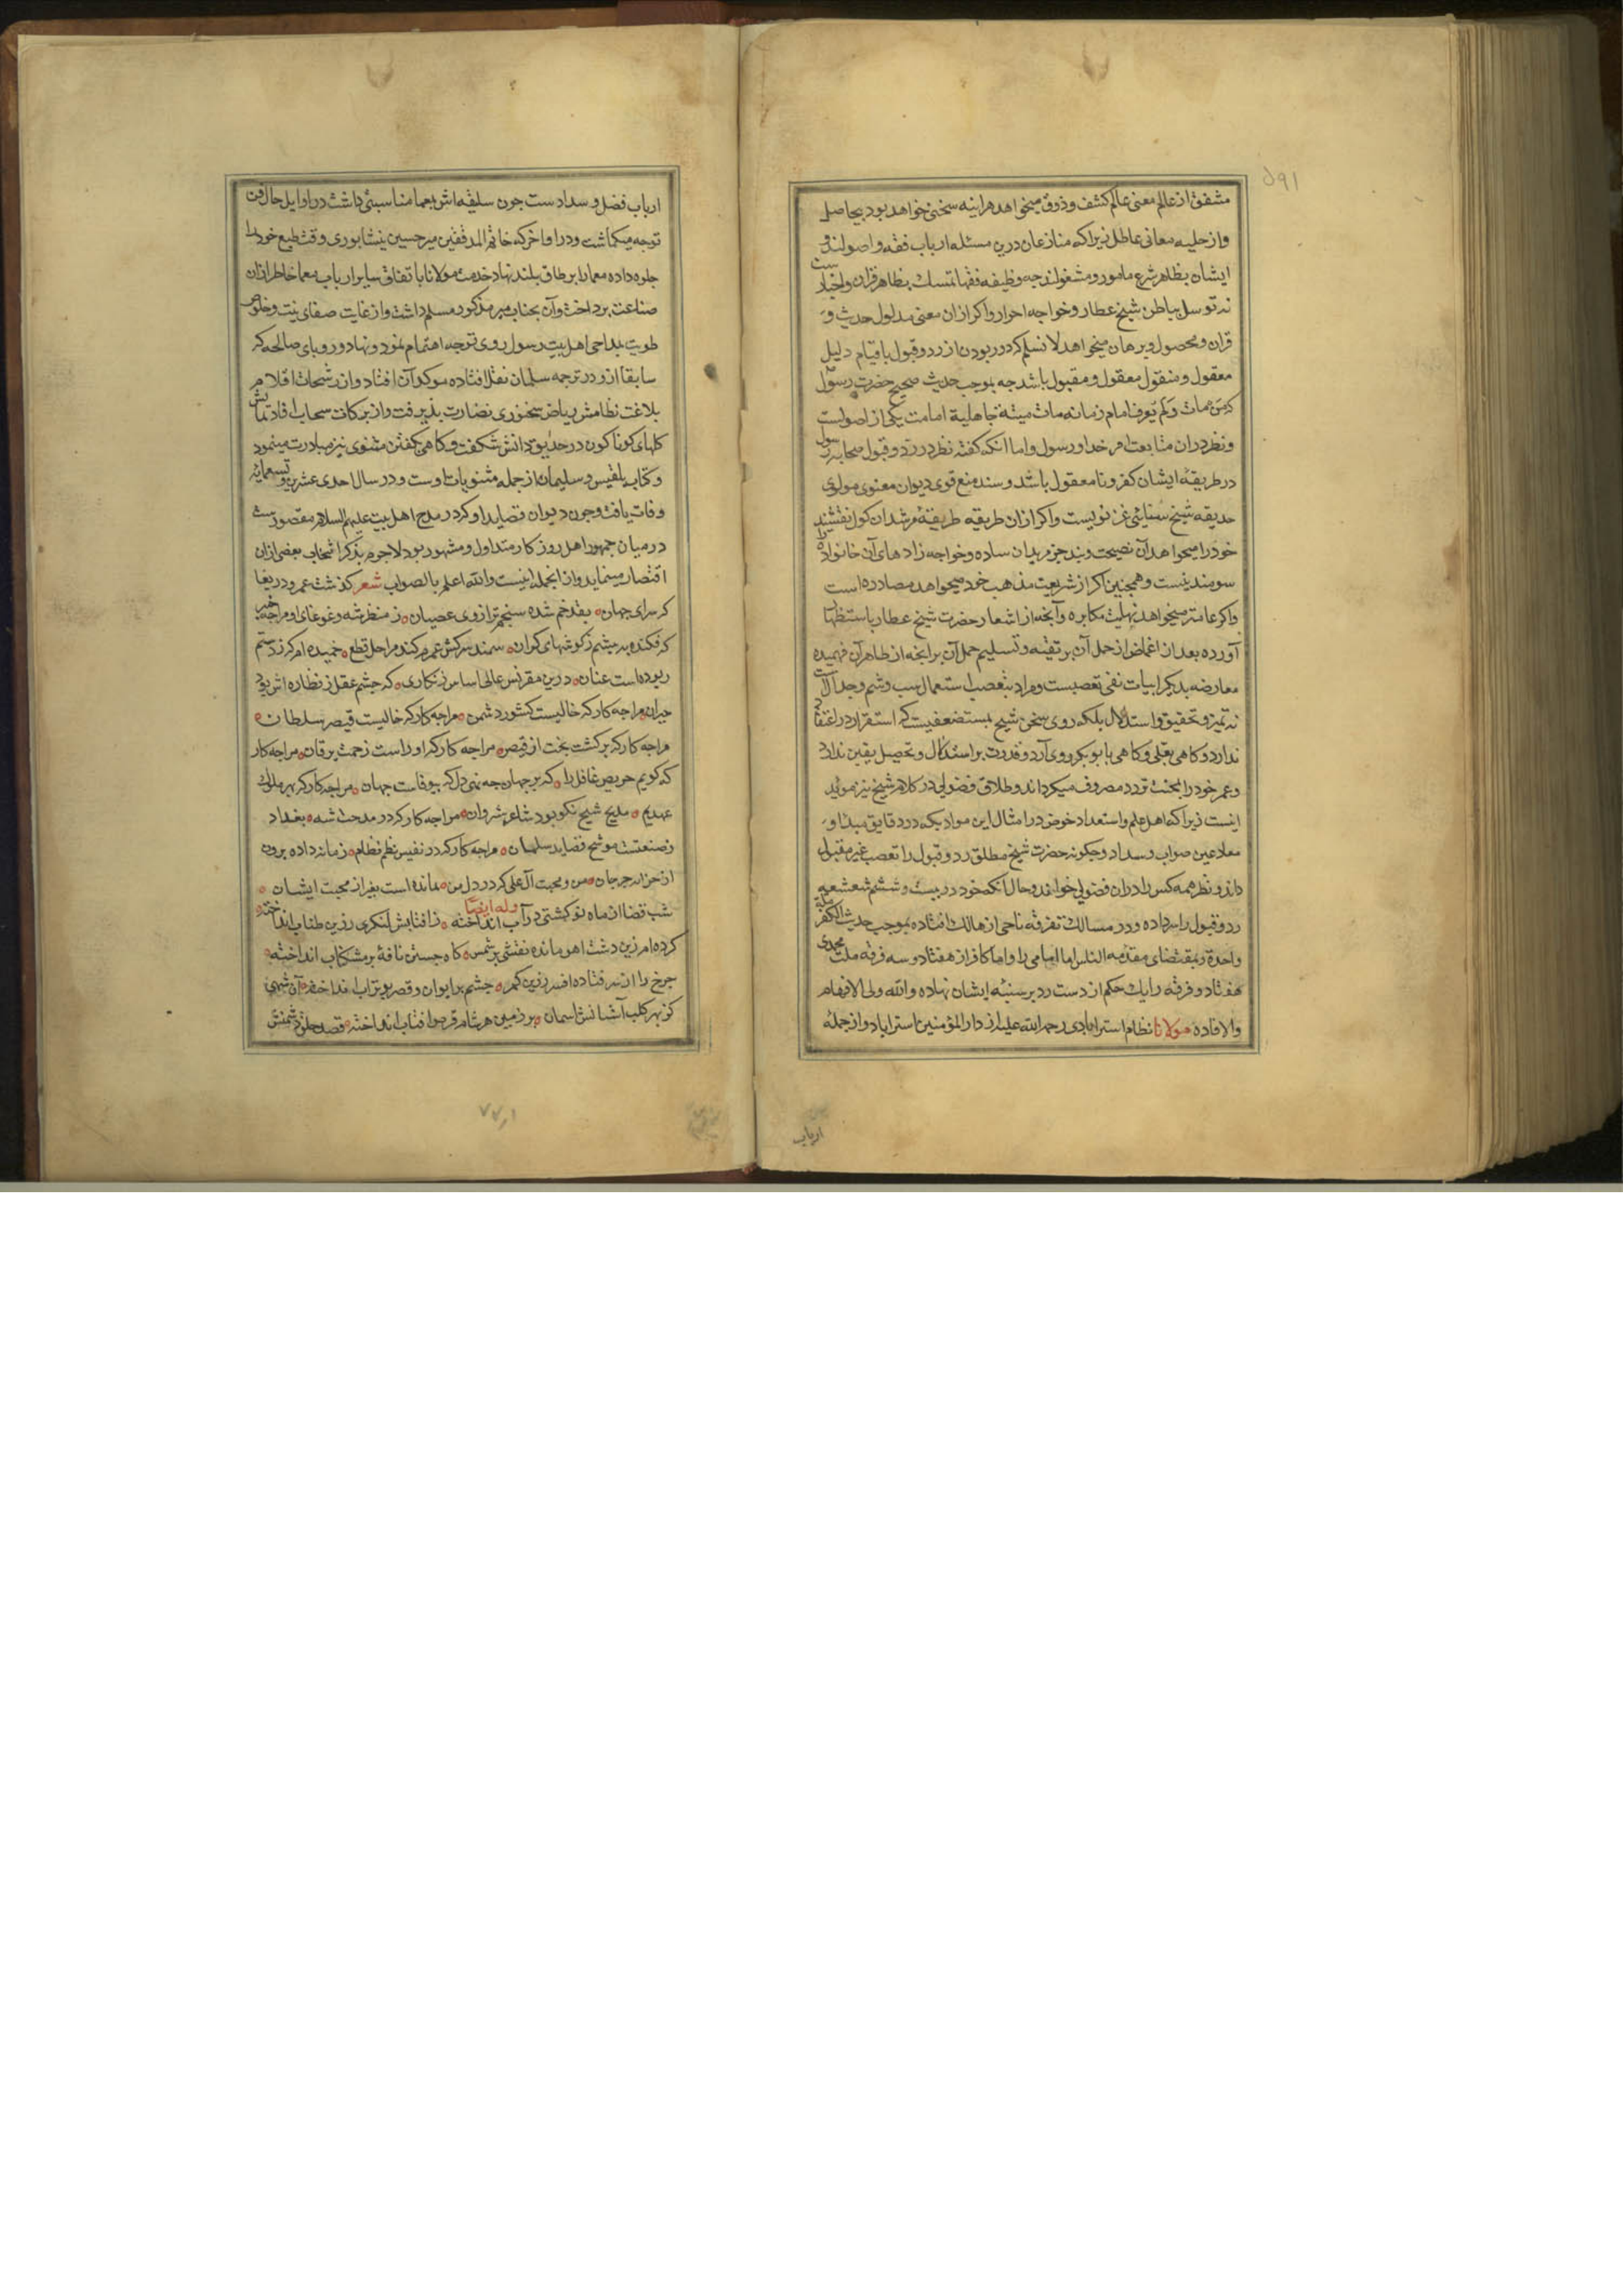 ۵۹۱
مشفق از عالم معنی عالم کشف و ذوق میخواهد هراینه سخنی خواهد بود بیحاصل
و از حلیه معانی عاطل زیرا که منازعان درین مسئله ارباب فقه و اصولند و
ایشان بظاهر شرع مامور و مشغولند چه وظیفه فقها تمسک بظاهر قران و اخبار ست
نه توسل بباطن شیخ عطار و خواجه احرار و اکر ازان معنی مدلول حدیث و
قران و محصول و برهان میخواهد لا نسلم که دور بودن از رد و قبول با قیام دلیل
معقول و منقول معقول و مقبول باشد چه بموجب حدیث صحیح حضرت رسول
که من مات و لم یعرف امام زمانه مات میتة جاهلیة امامت یکی از اصولست
و نظر دران متابعت امر خدا و رسول و اما آنکه کفته نظر در رد و قبول صحابه رسول
در طریقه ایشان کفر و نا معقول باشد و سند منع قوی دیوان معنوی مولوی
حدیقه شیخ سنائی غزنویست و اکر ازان طریقه طریقهٔ مرشدان کول نقشبند
خود را میخواهد آن نصیحت و بند جز مریدان ساده و خواجه زادهای آن خانواده را
سومند نیست و همچنین اکر از شریعت مذهب خود میخواهد مصادره است
و اکر عامتر میخواهد نهایت مکابره و آنچه از اشعار حضرت شیخ عطار باستظهار
آورده بعد از اغماض از حمل آن بر تقیه و تسلیم حمل آن بر انچه از ظاهر آن فهمیده
معارضه بدیکر ابیات نفی تعصبست و مراد بتعصب استعمال سب و شتم و جدالست
نه تمیز و تحقیق و استدلال بلکه روی سخن شیخ بمستضعفیست که استقرار در اعتقاد
ندارد و کاهی بعلی و کاهی بابوبکر روی آرد و قدرت بر استدلال و تحصیل یقین ندارد
و عمر خود را بحنث تردد مصروف میکرداند و طلاق فضولی در کلام شیخ نیز موید
اینست زیرا که اهل علم و استعداد خوض در امثال این مواد بکه در دقایق مبدا و
معاد عین صواب و سداد و چکونه حضرت شیخ مطلق رد و قبول را تعصب غیر مقبول
داند و نظر همه کس را دران فضولی خواند و حال آنکه خود در بیت و ششم شعشعه
رد و قبول را سر داده و در مسالک تفرقه ناجی از هالک افتاده بموجب حدیث الکفر ملة
واحدة و بمقتضای مقدمه الناس اما امامی را و اما کافر از هفتاد و سه فرقه ملت محمدی
هفتاد و فرقه را یک حکم از دست رد بر سینه ایشان نهاده و الله ولی الافهام
و الافاده مولانا نظام استرابادی رحمه الله علیه از دار المؤمنین استراباد و از جملهٔ
ارباب
ارباب فضل و سدادست چون سلیقه اش بمعما مناسبتی داشت در اوایل حال فن
توجه میکماشت و در اواخر که خاتم المدققین میر حسین نیشابوری وقت طبع خود را
جلوه داده معما را بر طاق بلند نهاد خدمت مولانا باتفاق سایر ارباب معما خاطر ازان
صناعت پرداخت و آن بجناب میر مذکور مسلم داشت و از غایت صفای نیت و خلوص
طویت بمداحی اهل بیت رسول روی توجه اهتمام نمود و نهاد و رویای صالحه که
سابقا ازو در ترجمه سلمان نقل افتاده موکد آن افتاد و از رشحات اقلام
بلاغت نظامش ریاض سخنوری نضارت پذیرفت و از برکات سحاب افاداتش
کلهای کوناکون در حدیقه دانش شکفت و کاهی بکفتن مثنوی نیز مبادرت مینمود
و کتاب بلقیس و سلیمان از جمله مثنویات اوست و در سال احدی عشرین و تسعمایه
وفات یافت و چون دیوان قصاید او که در مدح اهل بیت علیهم السلام مقصورست
در میان جمهور اهل روزکار متداول و مشهور بود لاجرم بذکر انتخاب بعضی ازان
اقتصار مینماید و از انجمله اینست و الله اعلم بالصواب شعر کذشت عمر و دریغا
که سرای جهان ٥ بقد خم شده سنجم ترازوی عصیان ٥ ز منظر شه و غوغای او مراچه خبر
که فکنده بیشم ز کوشهای کران ٥ سمند سرکش عمرم کند مراحل قطع ٥ خمیده ام که ز دستم
ربوده است عنان ٥ درین مقرنس عالی اساس زنکاری ٥ که چشم عقل ز نظاره اش بود
حیران ٥ مراچه کار که خالیست کشور دشمن ٥ مراچه کار که خالیست قیصر سلطان ٥
مراچه کار که برکشت بخت از قیصر ٥ مراچه کار که او راست زحمت یرقان ٥ مراچه کار
که کویم حریص غافل را ٥ که بر جهان چه نهی دل که بیوفاست جهان ٥ مراچه کار که بهر ملوک
عهدیم ٥ مدیح شیخ نکو بود شاعر شروان ٥ مراچه کار که در مدحت شه بغداد
ز صنعتست موشح قصاید سلمان ٥ مراچه کار که در نفیس نظم نظام ٥ زمانه داده برون
از خزانه جرجان ٥ من و محبت آل علی که در دل من ٥ نمانده است بغیر از محبت ایشان ٥
وله ایضا
شب قضا از ماه نو کشتی در آب انداخته ٥ ز آفتابش لنکری زرین طناب انداخته ٥
کرده ام زین دشت اهو مانده نقشی بر شمس ٥ کاه جستن نافهٔ بر مشکناب انداخته ٥
چرخ را از سر فتاده افسر زرین کمر ٥ چشم بر ایوان و قصر بوتراب انداخته ٥ آن شهی
کز بهر کلب آشیانش اسمان ٥ بر زمین هر شام قرص افتاب انداخته ٥ قصد حلق دشمنش